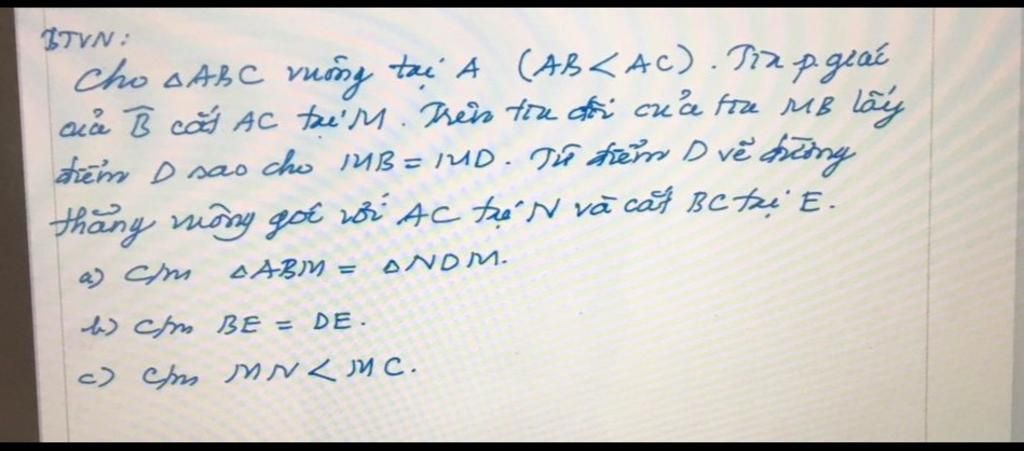 BTVN:
Cho △ABC vuông tại A (AB < AC). Tia p.giác
của B̂ cắt AC tại M. Trên tia đối của tia MB lấy
điểm D sao cho MB = MD. Từ điểm D vẽ đường
thẳng vuông góc với AC tại N và cắt BC tại E.
a) C/m △ABM = △NDM.
b) C/m BE = DE.
c) C/m MN < MC.